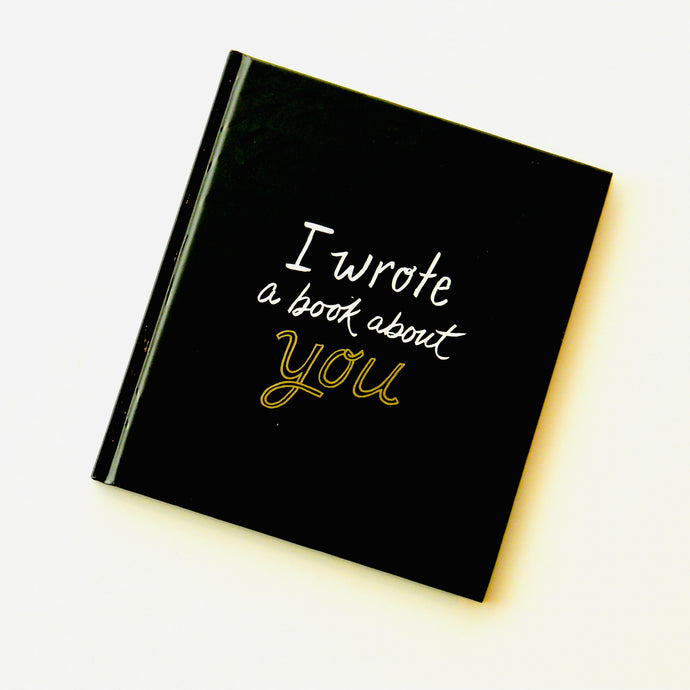 I wrote
a book about
you